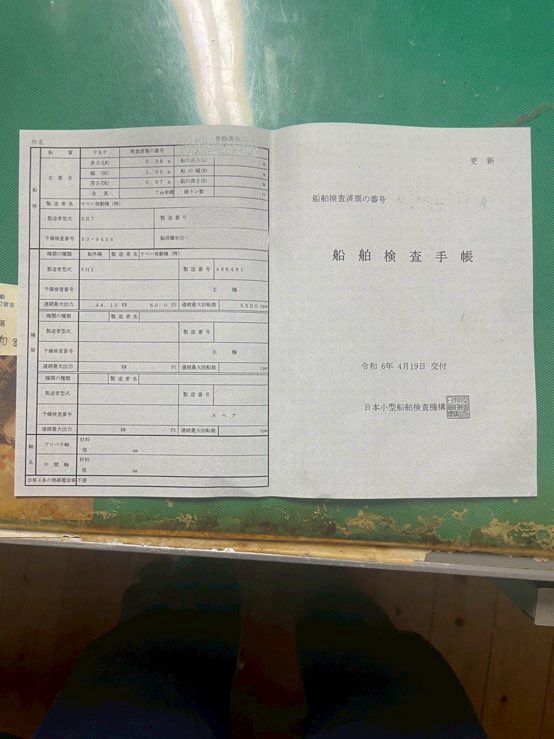 件名
登録済み
船質 FRP 検査済票の番号
主要目 長さ(LR) 5.38 m 船の長さ(L) m
幅(BR) 1.95 m 船の幅(B) m
深さ(DR) 0.67 m 船の深さ(D) m
全長 7m未満 総トン数
船体
製造者名 ヤマハ発動機(株)
製造者型式 製造番号
予備検査番号 53-9434 船体識別番号
機関の種類 船外機 製造者名 ヤマハ発動機(株)
製造者型式 6H2 製造番号 406481
予備検査番号 主機
連続最大出力 44.10 KW 60.0 PS 連続最大回転数 5500 rpm
機関の種類 製造者名
製造者型式 製造番号
機関
予備検査番号 主機
連続最大出力 KW PS 連続最大回転数 rpm
機関の種類 製造者名
製造者型式 製造番号
予備検査番号 スペア
連続最大出力 KW PS 連続最大回転数 rpm
軸系 プロペラ軸 材料
径 mm
中間軸 材料
径 mm
更新
船舶検査済票の番号
船舶検査手帳
令和 6年 4月19日 交付
日本小型船舶検査機構